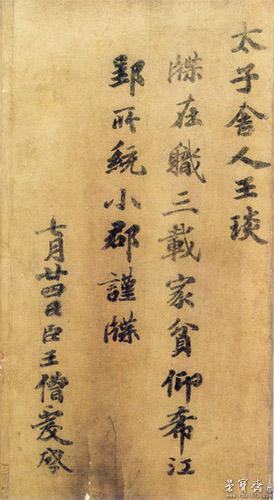 太子舍人王琰
牒在職三載家貧仰希江
郢所統小郡謹牒
七月廿四日臣王僧虔啓
榮寶齋